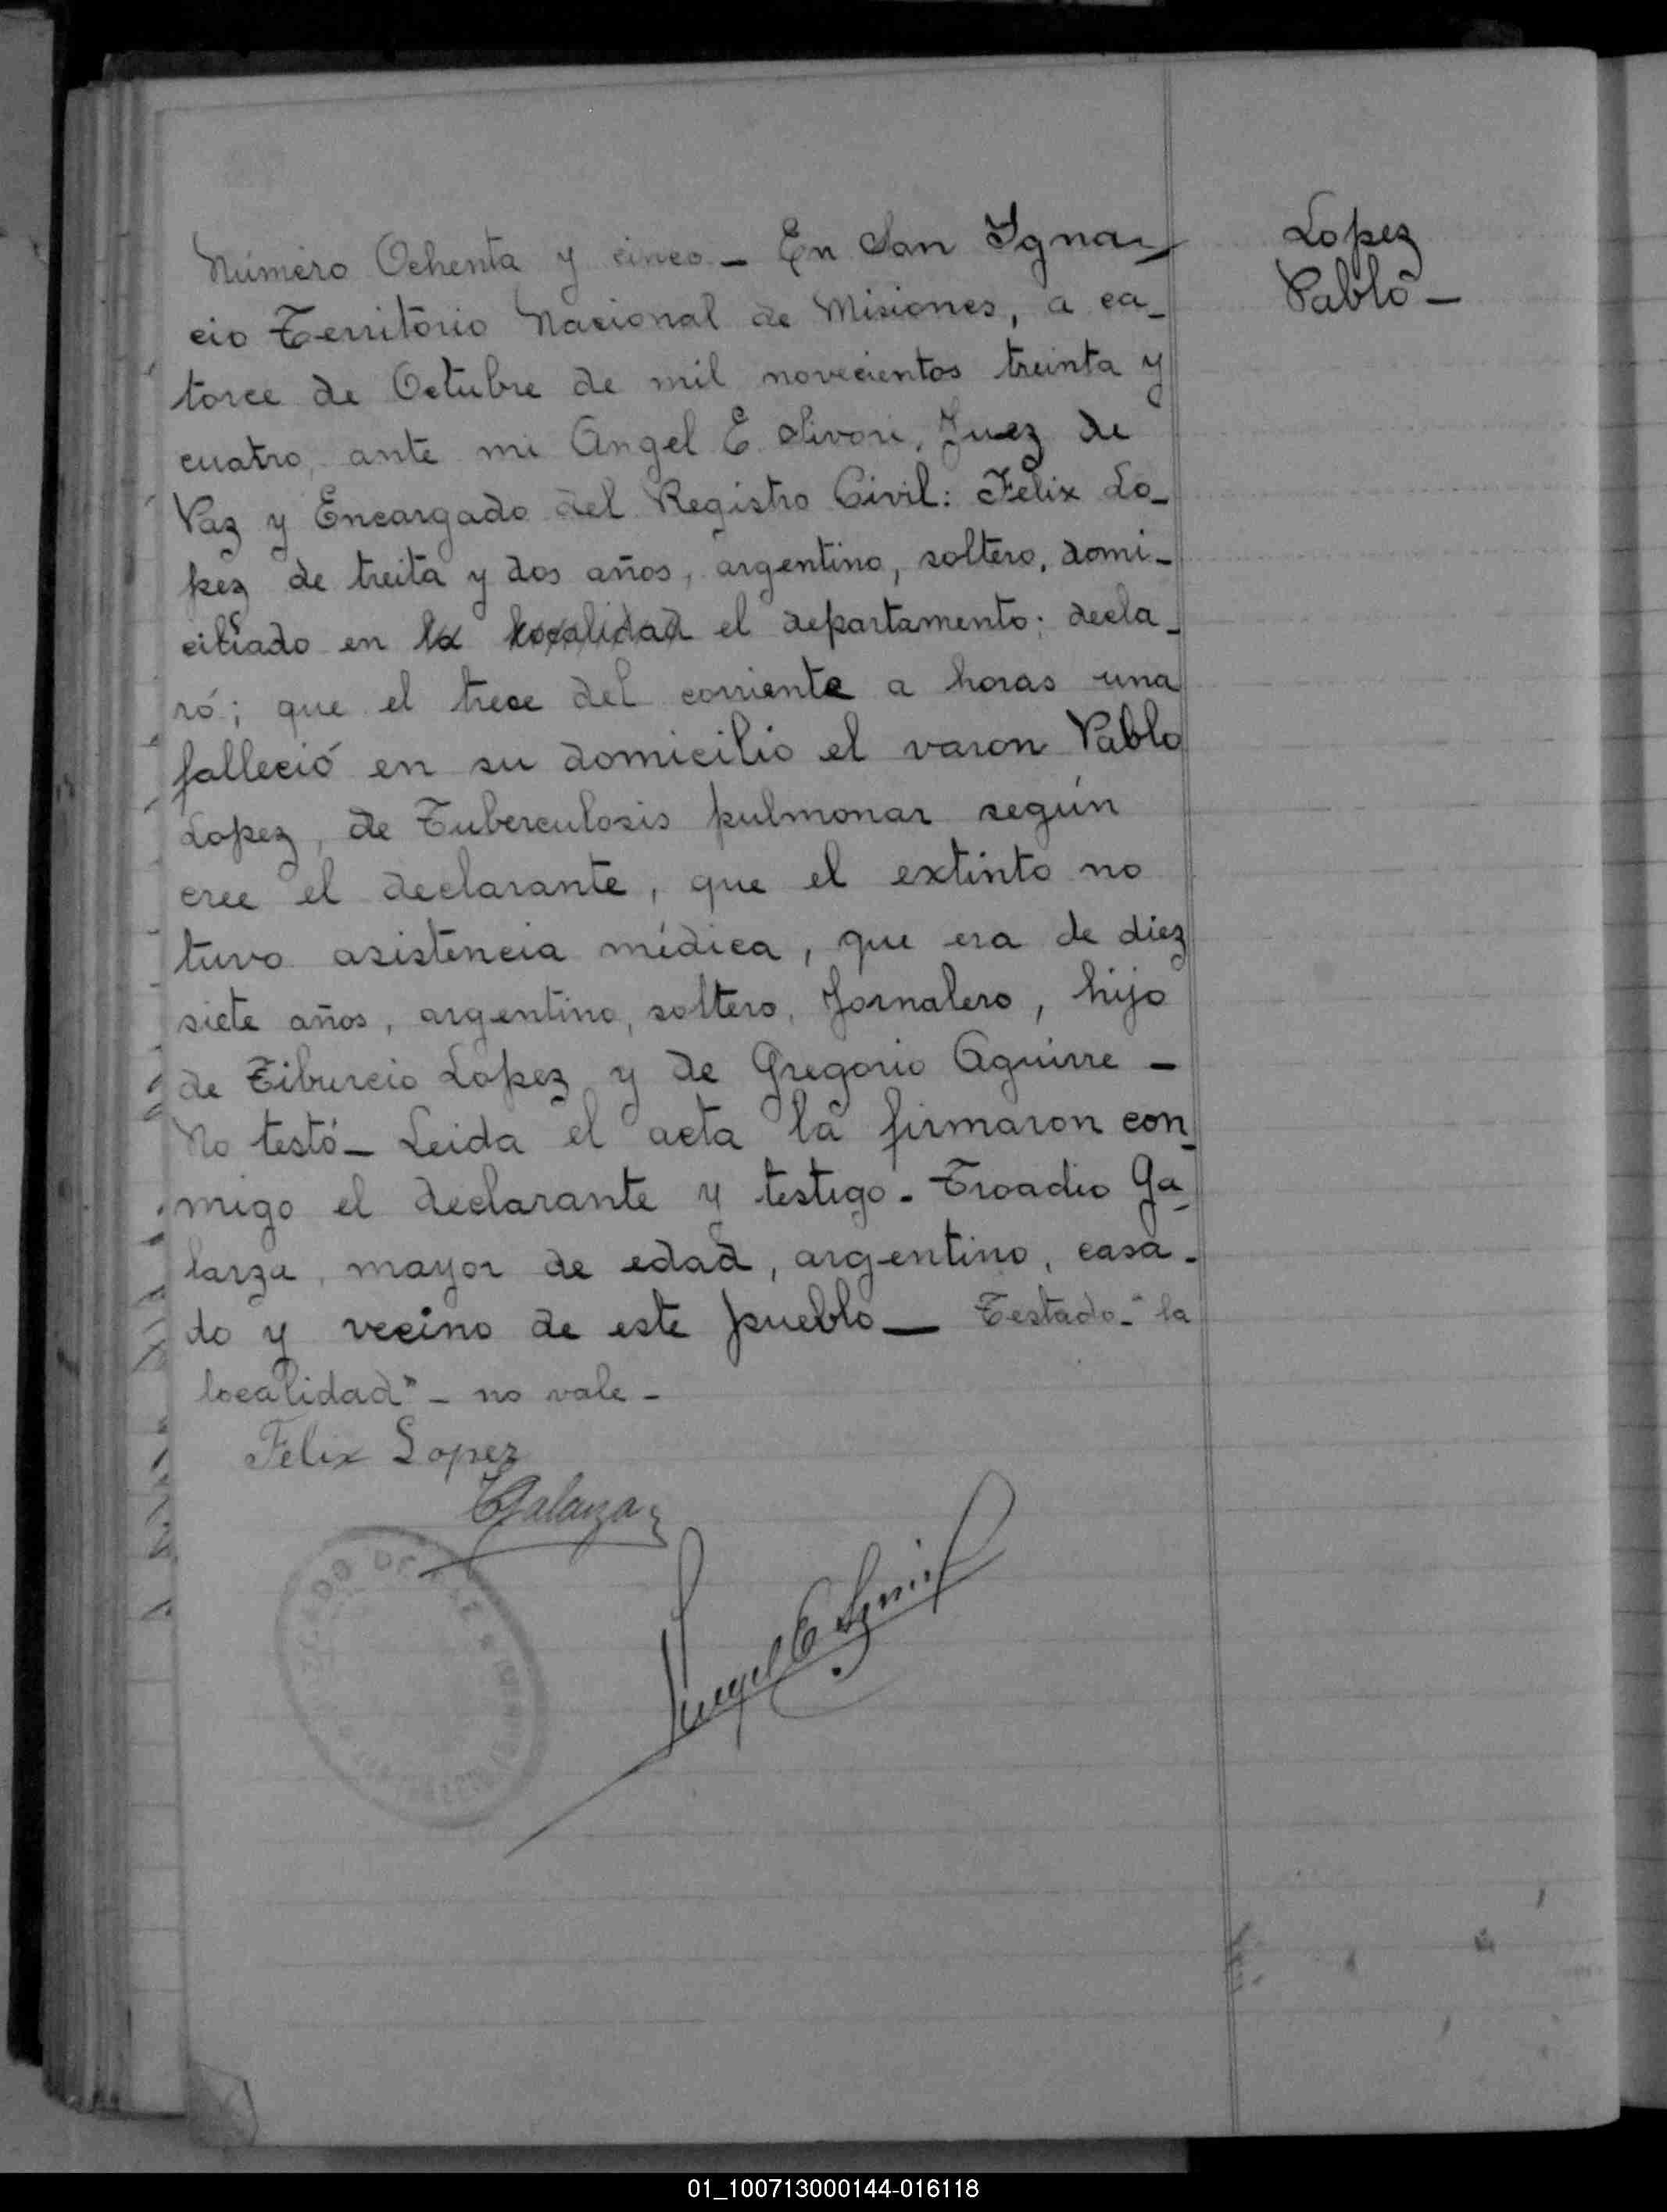 Lopez
Pablo —
Número Ochenta y cinco — En San Igna-
cio Territorio Nacional de Misiones, a ca-
torce de Octubre de mil novecientos treinta y
cuatro, ante mi Angel E. Sivori, Juez de
Paz y Encargado del Registro Civil: Felix Lo-
pez de treita y dos años, argentino, soltero, domi-
ciliado en la localidad el departamento; decla-
ró; que el trece del corriente a horas una
falleció en su domicilio el varon Pablo
Lopez, de Tuberculosis pulmonar según
cree el declarante, que el extinto no
tuvo asistencia médica, que era de diez
siete años, argentino, soltero, Jornalero, hijo
de Tiburcio Lopez y de Gregorio Aguirre —
No testó — Leida el acta la firmaron con-
migo el declarante y testigo - Troadio Ga-
larza, mayor de edad, argentino, casa-
do y vecino de este pueblo — Testado - "la
localidad" - no vale -
Felix Lopez
TGalarza
Angel E Sivori
01_100713000144-016118